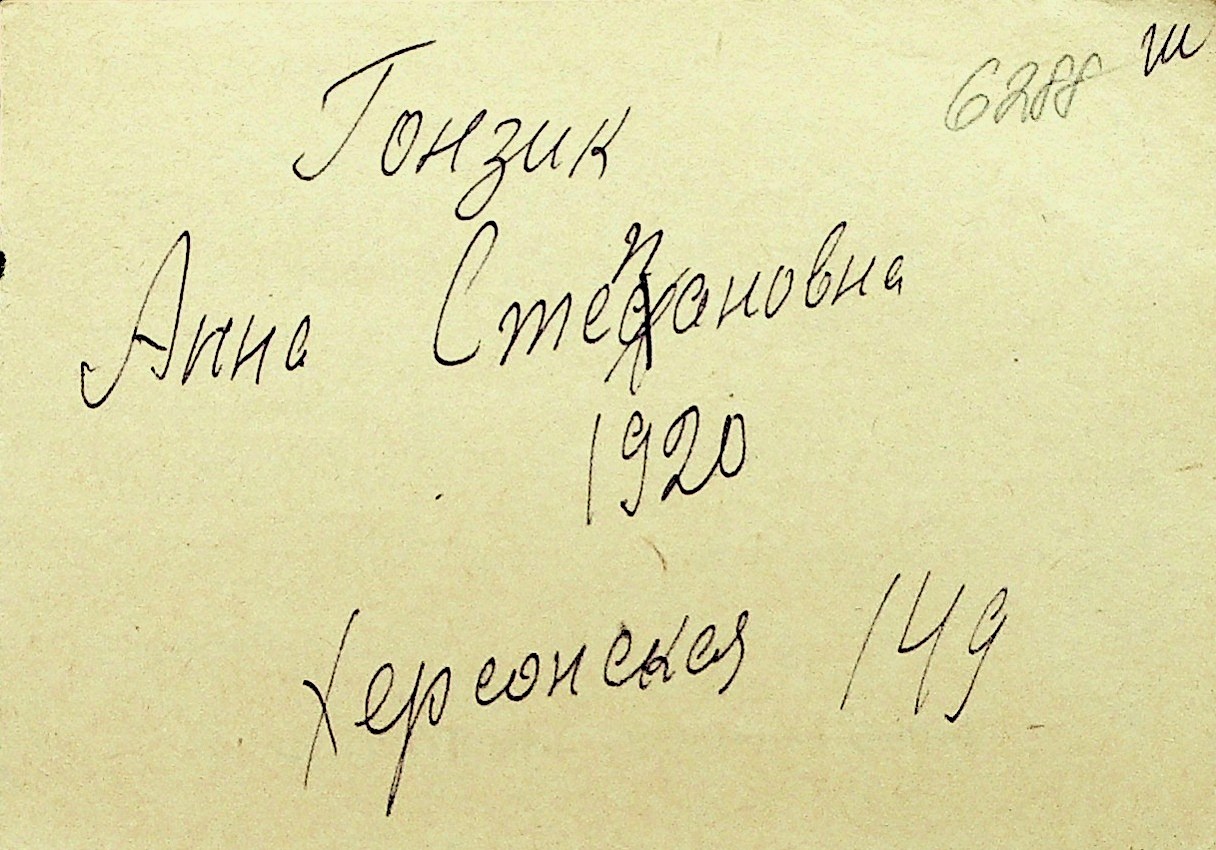 6288 ш
Гонзик
Анна Степановна
1920
Херсонская 149